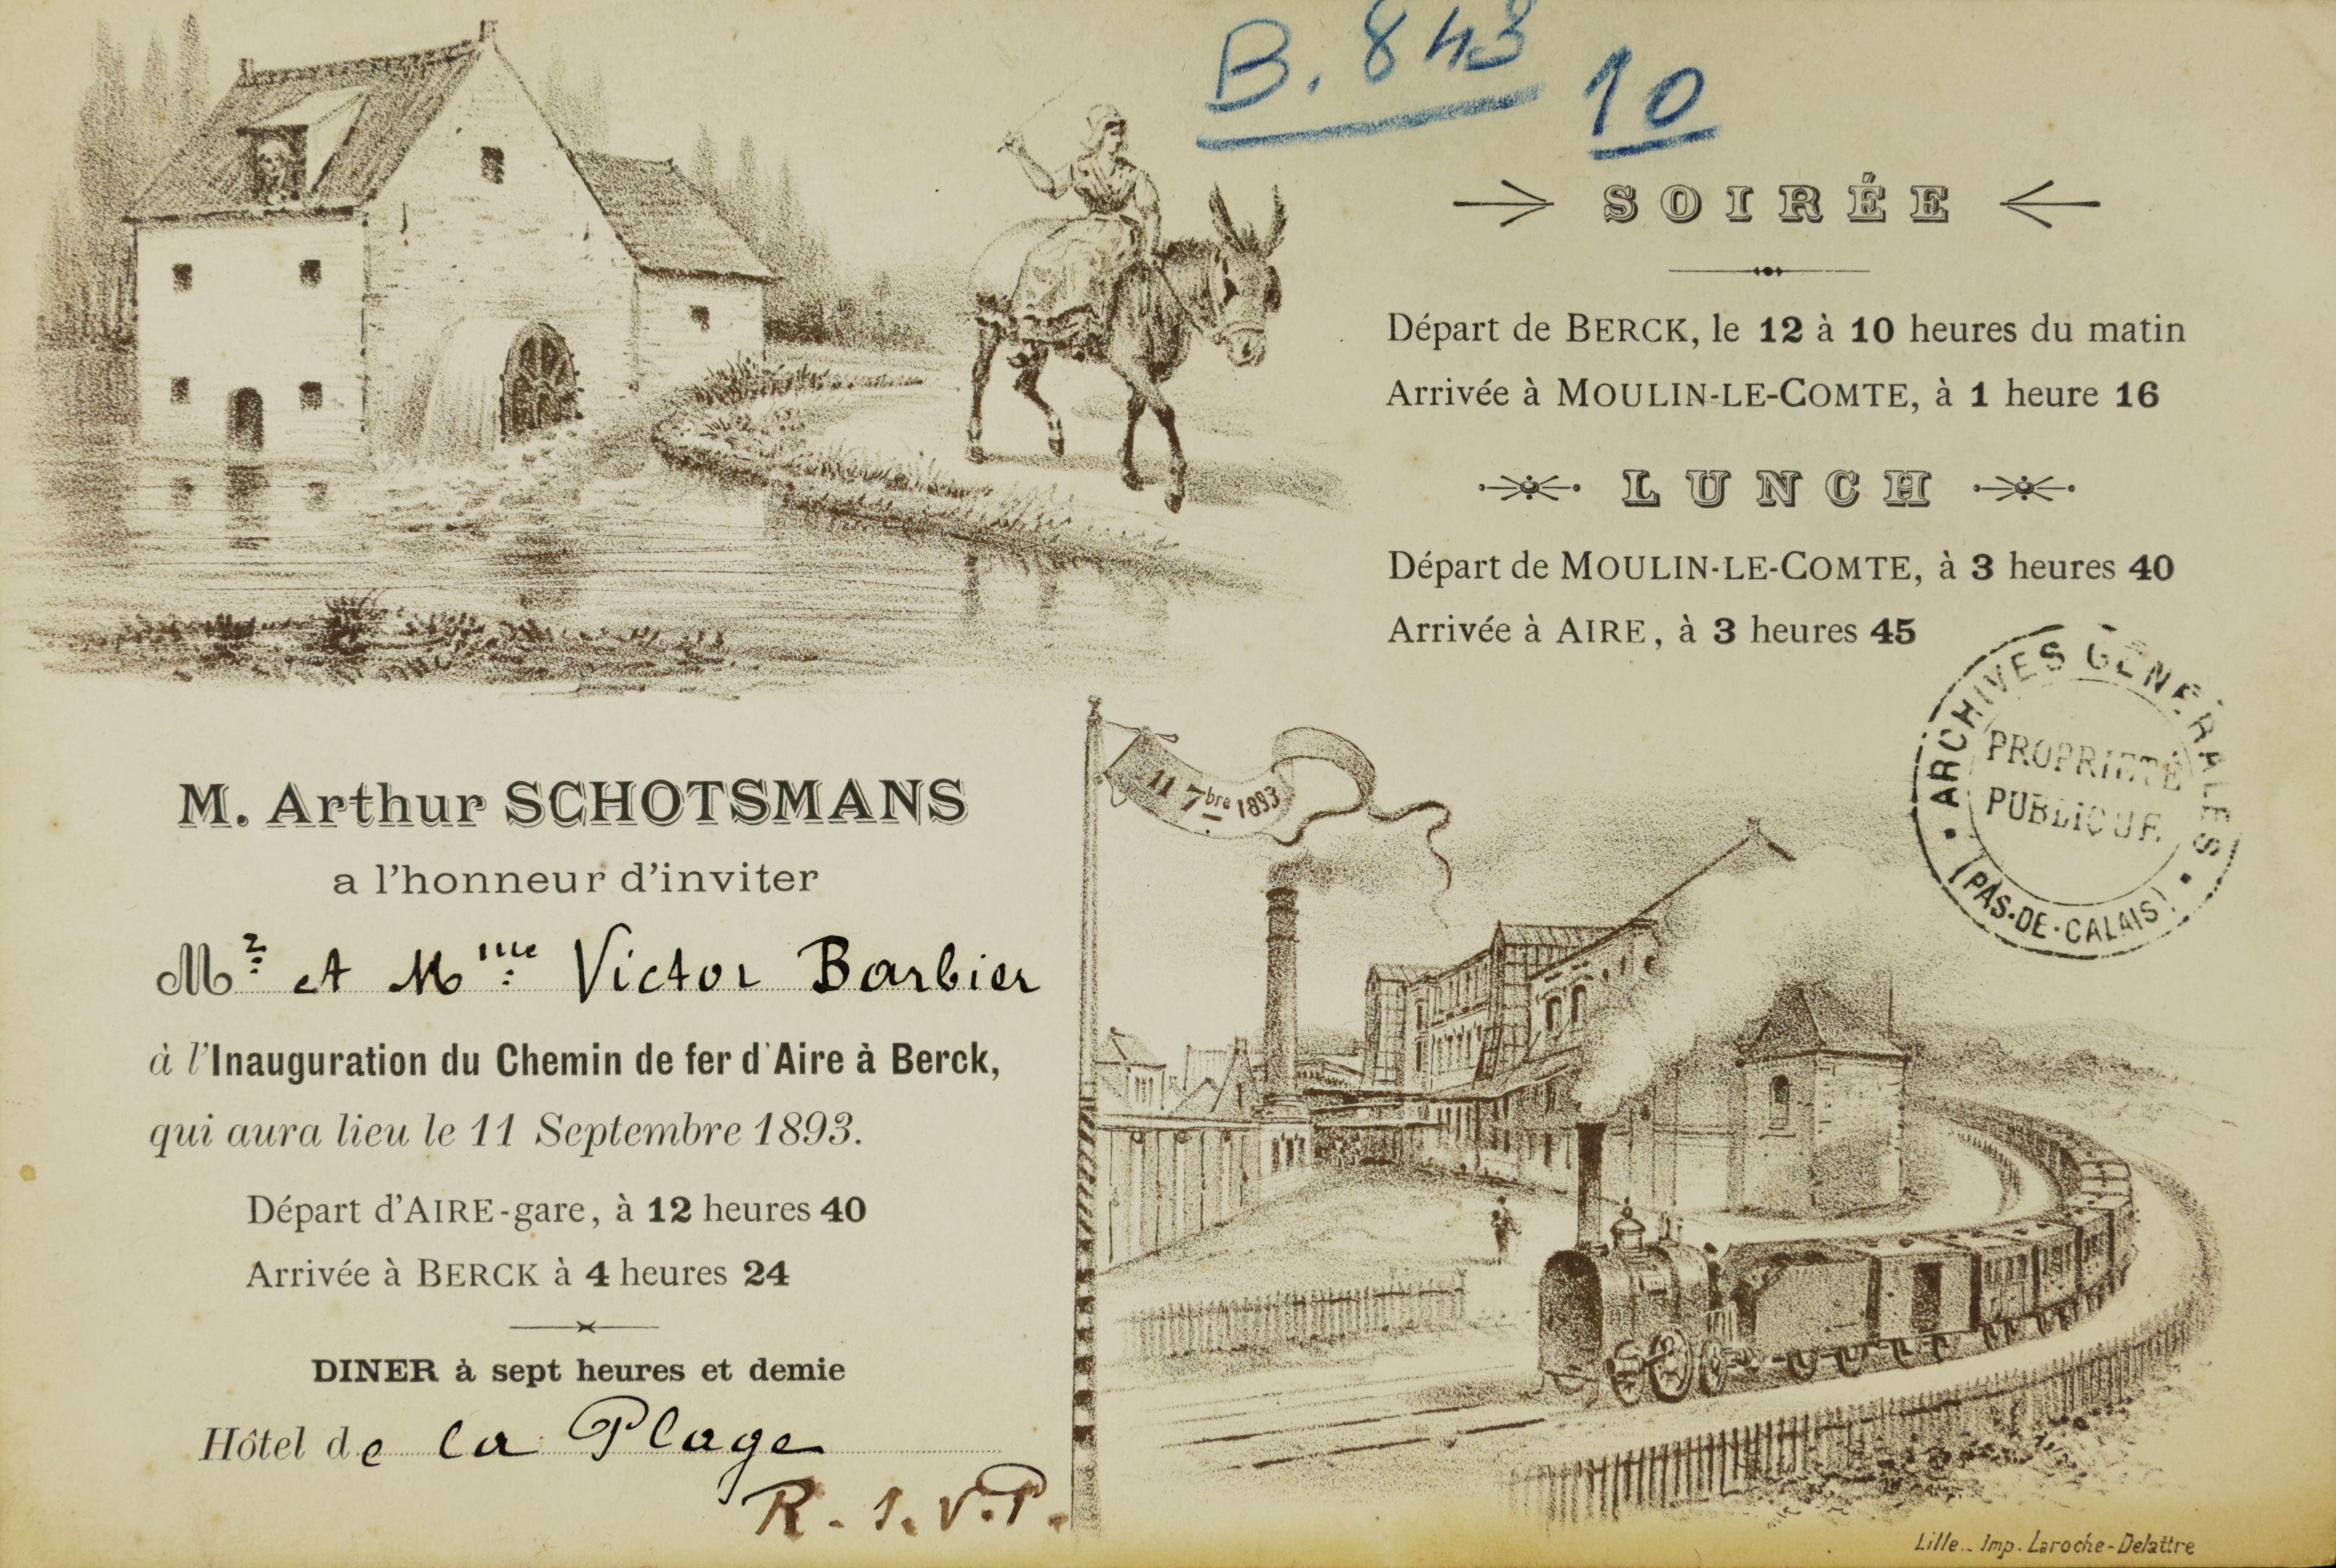 B. 843
10
11 7bre 1893
M. Arthur SCHOTSMANS
a l'honneur d'inviter
Mr et Mme Victor Barbier
à l'Inauguration du Chemin de fer d'Aire à Berck,
qui aura lieu le 11 Septembre 1893.
Départ d'AIRE-gare, à 12 heures 40
Arrivée à BERCK à 4 heures 24
DINER à sept heures et demie
Hôtel de la Plage
R. S. V. P.
SOIRÉE
Départ de BERCK, le 12 à 10 heures du matin
Arrivée à MOULIN-LE-COMTE, à 1 heure 16
LUNCH
Départ de MOULIN-LE-COMTE, à 3 heures 40
Arrivée à AIRE, à 3 heures 45
ARCHIVES GÉNÉRALES
PROPRIÉTÉ
PUBLIQUE
(PAS-DE-CALAIS)
Lille.. Imp. Laroche-Delattre